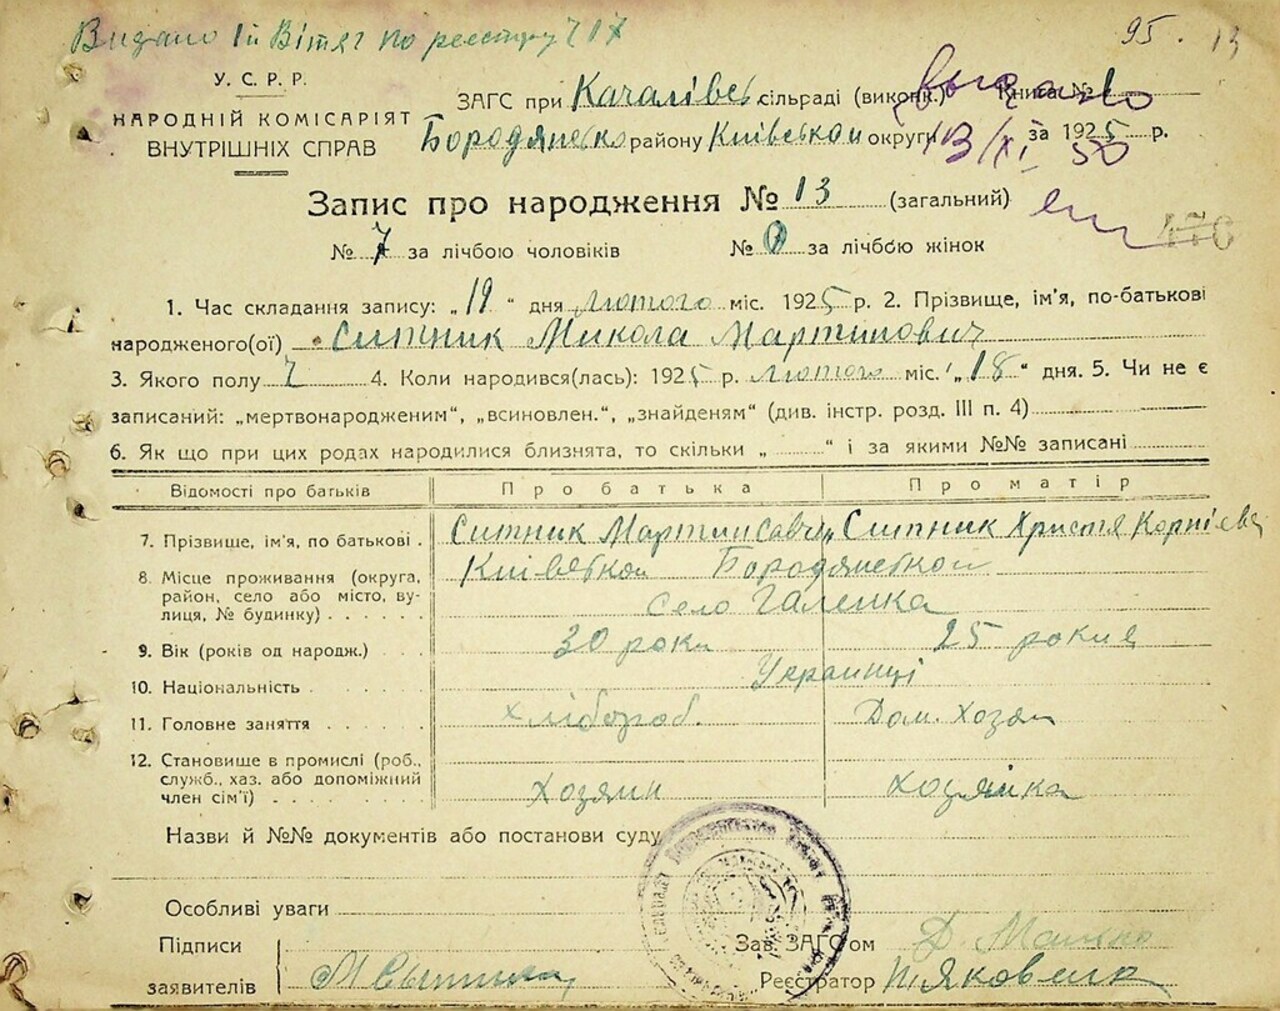 Видано 1й Витяг по реєстру Ч 17
95. 13
У. С. Р. Р.
НАРОДНІЙ КОМІСАРІЯТ
ВНУТРІШНІХ СПРАВ
ЗАГС при Качалівс. сільраді (виконк.) Книга № 1
Бородянсько району Київськой округи за 1925 р.
выдано
13/XI 50
Запис про народження № 13 (загальний)
476
№ 7 за лічбою чоловіків № 0 за лічбою жінок
1. Час складання запису: „19" дня лютого міс. 1925 р. 2. Прізвище, ім'я, по-батькові
народженого(ої) Ситник Микола Мартинович
3. Якого полу Ч 4. Коли народився(лась): 1925 р. лютого міс. „18" дня. 5. Чи не є
записаний: „мертвонародженим", „всиновлен.", „знайденям" (див. інстр. розд. III п. 4)
6. Як що при цих родах народилися близнята, то скільки „ " і за якими №№ записані
Відомості про батьків Про батька Про матір
7. Прізвище, ім'я, по батькові . Ситник Мартин Савич Ситник Христя Корнієв
8. Місце проживання (округа, Київськой Бородянськой
район, село або місто, ву-
лиця, № будинку) . . . . . . село Галенка
9. Вік (років од народж.) 30 роки 25 рокив
10. Національність Украинці
11. Головне заняття . . . . . . хлібороб. Дом. Хозяй
12. Становище в промислі (роб.,
служб., хаз. або допоміжний
член сім'ї) . . . . . . . . Хозяин хозяйка
Назви й №№ документів або постанови суду
Особливі уваги
Підписи Зав. ЗАГС'ом
заявителів М Сытник Реєстратор Яковенко